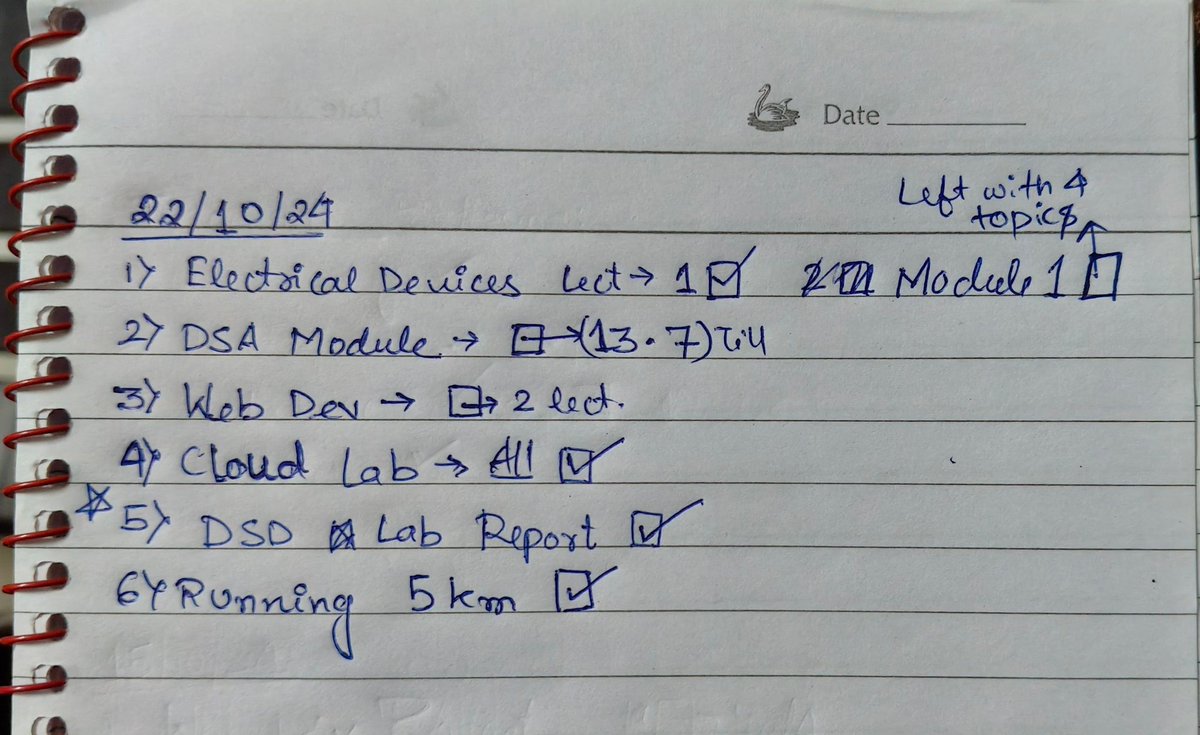 Date
22/10/24
Left with 4
topics
1) Electrical Devices Lect → 1 ☑ Module 1 ☐
2) DSA Module → ⊟→(13.7) Till
3) Web Dev → ⊟→ 2 lect.
4) Cloud Lab → All ☑
☆ 5) DSD Lab Report ☑
6) Running 5 km ☑